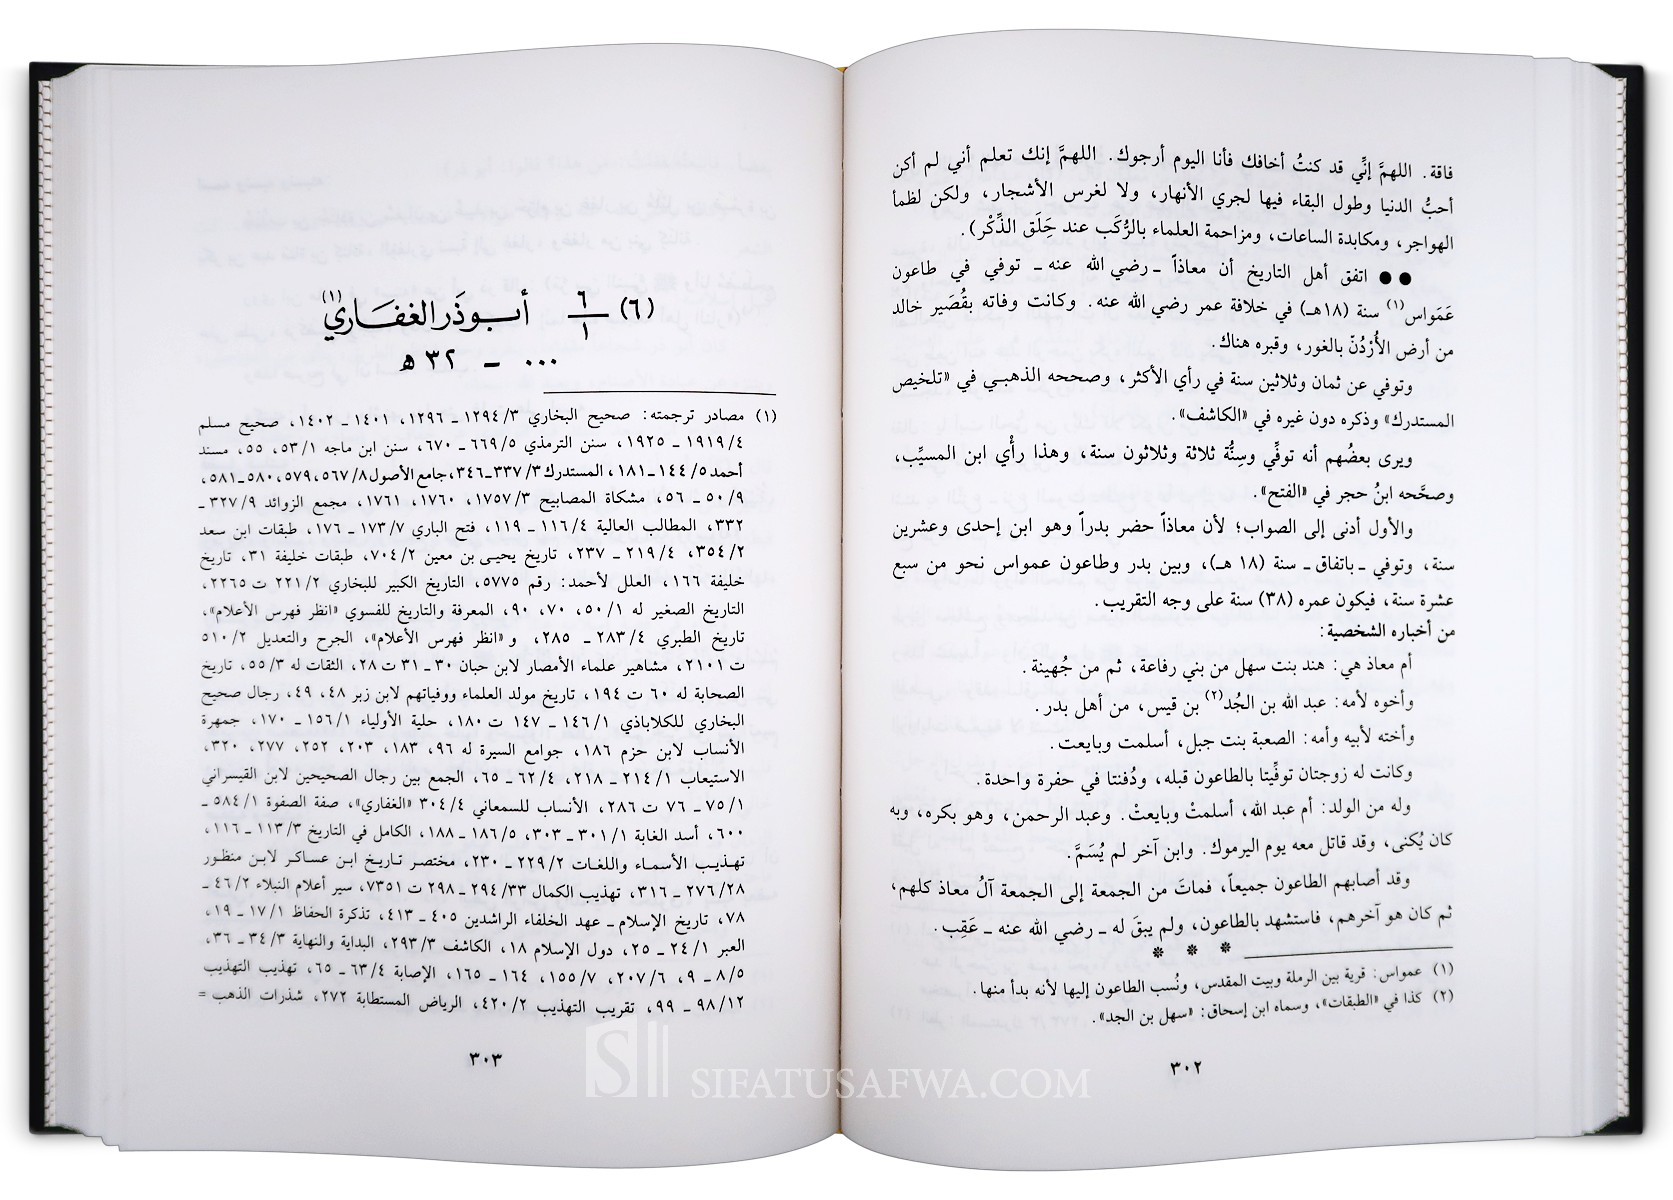 فاقة. اللهمَّ إنِّي قد كنتُ أخافك فأنا اليوم أرجوك. اللهمَّ إنك تعلم أني لم أكن
أحبُّ الدنيا وطول البقاء فيها لجري الأنهار، ولا لغرس الأشجار، ولكن لظمأ
الهواجر، ومكابدة الساعات، ومزاحمة العلماء بالرُّكَب عند حِلَق الذِّكْر).
●● اتفق أهل التاريخ أن معاذاً ـ رضي الله عنه ـ توفي في طاعون
عَمَواس(١) سنة (١٨هـ) في خلافة عمر رضي الله عنه. وكانت وفاته بقُصَير خالد
من أرض الأُرْدُنّ بالغور، وقبره هناك.
وتوفي عن ثمان وثلاثين سنة في رأي الأكثر، وصححه الذهبـي في «تلخيص
المستدرك» وذكره دون غيره في «الكاشف».
ويرى بعضُهم أنه توفِّي وسِنُّة ثلاثة وثلاثون سنة، وهذا رأْي ابن المسيِّب،
وصحَّحه ابنُ حجر في «الفتح».
والأول أدنى إلى الصواب؛ لأن معاذاً حضر بدراً وهو ابن إحدى وعشرين
سنة، وتوفي ـ باتفاق ـ سنة (١٨ هـ)، وبين بدر وطاعون عمواس نحو من سبع
عشرة سنة، فيكون عمره (٣٨) سنة على وجه التقريب.
من أخباره الشخصية:
أم معاذ هي: هند بنت سهل من بني رفاعة، ثم من جُهينة.
وأخوه لأمه: عبد الله بن الجُد(٢) بن قيس، من أهل بدر.
وأخته لأبيه وأمه: الصعبة بنت جبل، أسلمت وبايعت.
وكانت له زوجتان توفِّيتا بالطاعون قبله، ودُفنتا في حفرة واحدة.
وله من الولد: أم عبد الله، أسلمتْ وبايعتْ. وعبد الرحمن، وهو بكره، وبه
كان يُكنى، وقد قاتل معه يوم اليرموك. وابن آخر لم يُسَمَّ.
وقد أصابهم الطاعون جميعاً، فماتَ من الجمعة إلى الجمعة آلُ معاذ كلهم،
ثم كان هو آخرهم، فاستشهد بالطاعون، ولم يبقَ له ـ رضي الله عنه ـ عَقِب.
* * *
(١) عمواس: قرية بين الرملة وبيت المقدس، ونُسب الطاعون إليها لأنه بدأ منها.
(٢) كذا في «الطبقات»، وسماه ابن إسحاق: «سهل بن الجد».
٣٠٢
(٦) ٦/١ أبـو ذَر الغفـاري(١)
... ـ ٣٢ هـ
(١) مصادر ترجمته: صحيح البخاري ١٢٩٤/٣ ـ ١٢٩٦، ١٤٠١ ـ ١٤٠٢، صحيح مسلم
١٩١٩/٤ ـ ١٩٢٥، سنن الترمذي ٦٦٩/٥ ـ ٦٧٠، سنن ابن ماجه ٥٣/١، ٥٥، مسند
أحمد ١٤٤/٥ ـ ١٨١، المستدرك ٣٣٧/٣ ـ ٣٤٦، جامع الأصول ٥٦٧/٨، ٥٧٩، ٥٨٠ ـ ٥٨١،
٥٠/٩ ـ ٥٦، مشكاة المصابيح ١٧٥٧/٣، ١٧٦٠، ١٧٦١، مجمع الزوائد ٣٢٧/٩ ـ
٣٣٢، المطالب العالية ١١٦/٤ ـ ١١٩، فتح الباري ١٧٣/٧ ـ ١٧٦، طبقات ابن سعد
٣٥٤/٢، ٢١٩/٤ ـ ٢٣٧، تاريخ يحيـى بن معين ٧٠٤/٢، طبقات خليفة ٣١، تاريخ
خليفة ١٦٦، العلل لأحمد: رقم ٥٧٧٥، التاريخ الكبير للبخاري ٢٢١/٢ ت ٢٢٦٥،
التاريخ الصغير له ٥٠/١، ٧٠، ٩٠، المعرفة والتاريخ للفسوي «انظر فهرس الأعلام»،
تاريخ الطبري ٢٨٣/٤ ـ ٢٨٥، و «انظر فهرس الأعلام»، الجرح والتعديل ٥١٠/٢
ت ٢١٠١، مشاهير علماء الأمصار لابن حبان ٣٠ ـ ٣١ ت ٢٨، الثقات له ٥٥/٣، تاريخ
الصحابة له ٦٠ ت ١٩٤، تاريخ مولد العلماء ووفياتهم لابن زبر ٤٨، ٤٩، رجال صحيح
البخاري للكلاباذي ١٤٦/١ ـ ١٤٧ ت ١٨٠، حلية الأولياء ١٥٦/١ ـ ١٧٠، جمهرة
الأنساب لابن حزم ١٨٦، جوامع السيرة له ٩٦، ١٨٣، ٢٠٣، ٢٥٢، ٢٧٧، ٣٢٠،
الاستيعاب ٢١٤/١ ـ ٢١٨، ٦٢/٤ ـ ٦٥، الجمع بين رجال الصحيحين لابن القيسراني
٧٥/١ ـ ٧٦ ت ٢٨٦، الأنساب للسمعاني ٣٠٤/٤ «الغفاري»، صفة الصفوة ٥٨٤/١ ـ
٦٠٠، أسد الغابة ٣٠١/١ ـ ٣٠٣، ١٨٦/٥ ـ ١٨٨، الكامل في التاريخ ١١٣/٣ ـ ١١٦،
تهذيب الأسماء واللغات ٢٢٩/٢ ـ ٢٣٠، مختصر تاريخ ابن عساكر لابن منظور
٢٧٦/٢٨ ـ ٣١٦، تهذيب الكمال ٢٩٤/٣٣ ـ ٢٩٨ ت ٧٣٥١، سير أعلام النبلاء ٤٦/٢ ـ
٧٨، تاريخ الإسلام ـ عهد الخلفاء الراشدين ٤٠٥ ـ ٤١٣، تذكرة الحفاظ ١٧/١ ـ ١٩،
العبر ٢٤/١ ـ ٢٥، دول الإسلام ١٨، الكاشف ٢٩٣/٣، البداية والنهاية ٣٤/٣ ـ ٣٦،
٨/٥ ـ ٩، ٢٠٧/٦، ١٥٥/٧، ١٦٤ ـ ١٦٥، الإصابة ٦٣/٤ ـ ٦٥، تهذيب التهذيب
٩٨/١٢ ـ ٩٩، تقريب التهذيب ٤٢٠/٢، الرياض المستطابة ٢٧٢، شذرات الذهب =
٣٠٣
SIFATUSAFWA.COM